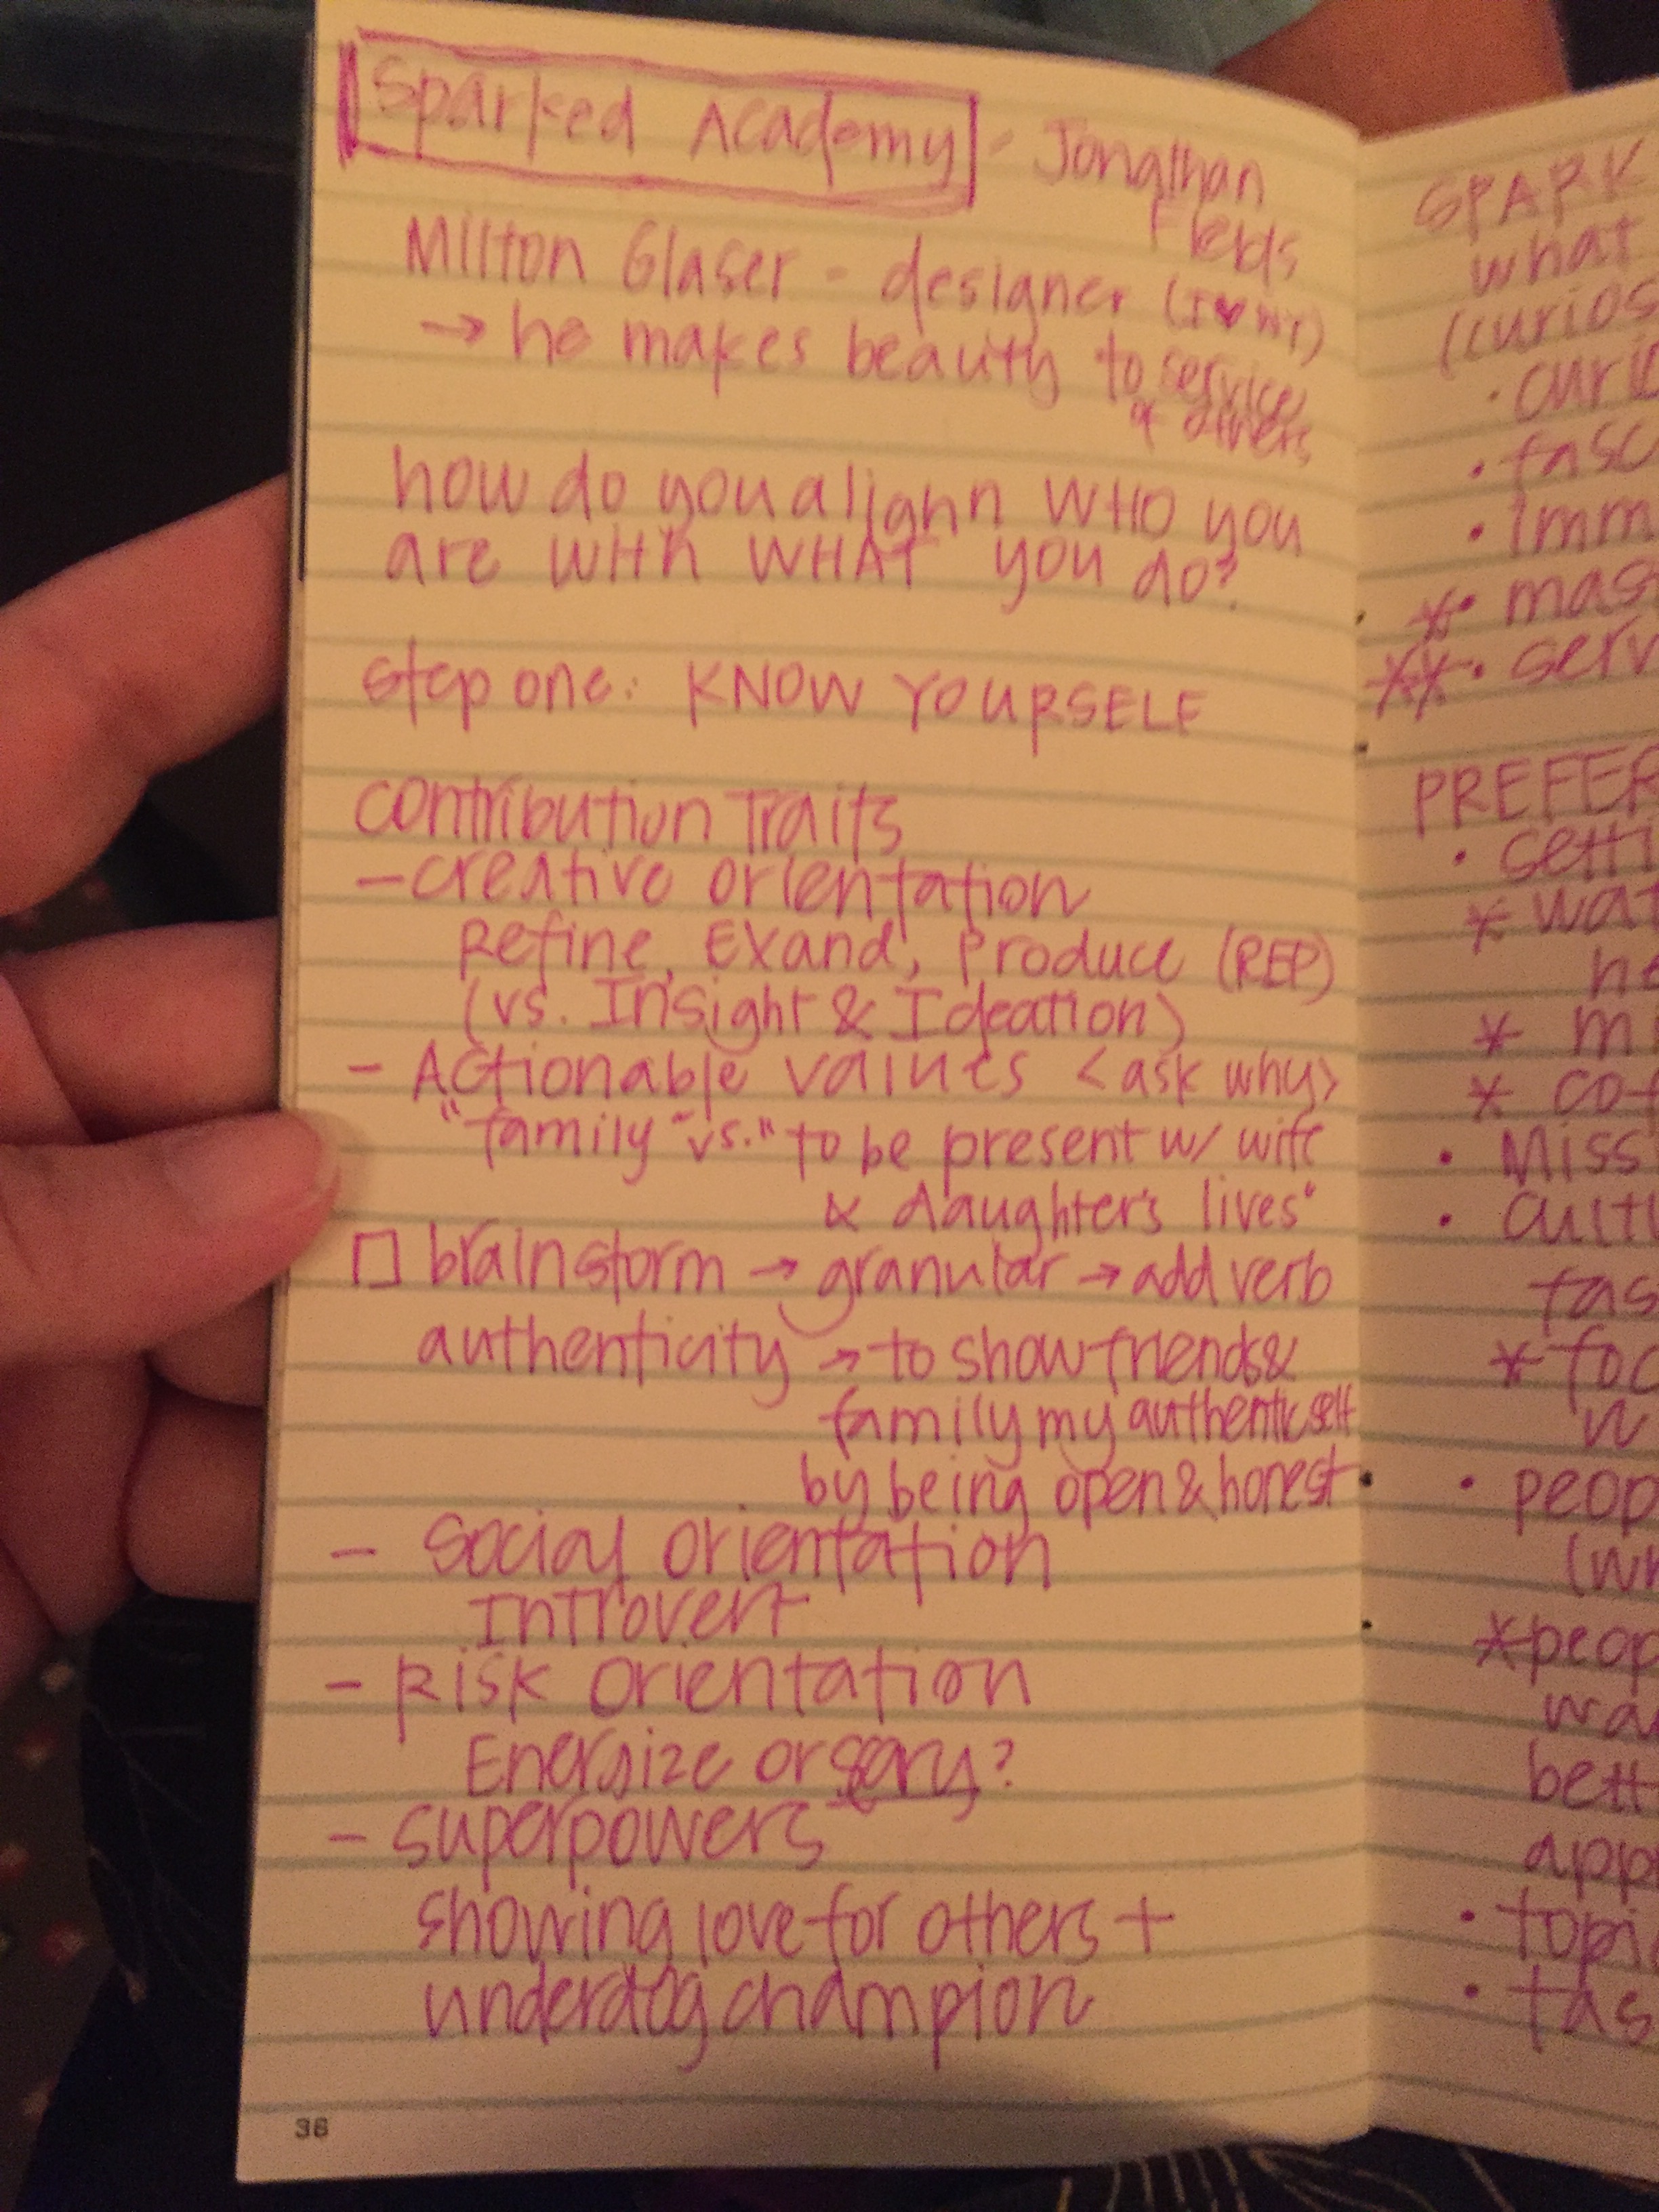 Sparked Academy - Jonathan
Fields
Milton Glaser - designer (I ♥ NY)
→ he makes beauty to service
of others
how do you alighn WHO you
are with WHAT you do?
step one: KNOW YOURSELF
contribution Traits
- creative orientation
Refine, Exand, Produce (REP)
(vs. Insight & Ideation)
- Actionable values <ask why>
"family" vs. "to be present w/ wife
& daughter's lives"
☐ brainstorm → granular → add verb
authenticity → to show friends &
family my authentic self
by being open & honest
- Social orientation
Introvert
- Risk orientation
Energize or scary?
- superpowers
showing love for others +
underdog champion
36
SPARK
what
(curios
· curio
· fasc
· imm
* · mas
** · serv
PREFER
· setti
* wat
he
* mi
* cof
· Miss
· cultu
tas
* foc
· peop
(wh
* peop
wa
bett
app
· topic
· tas